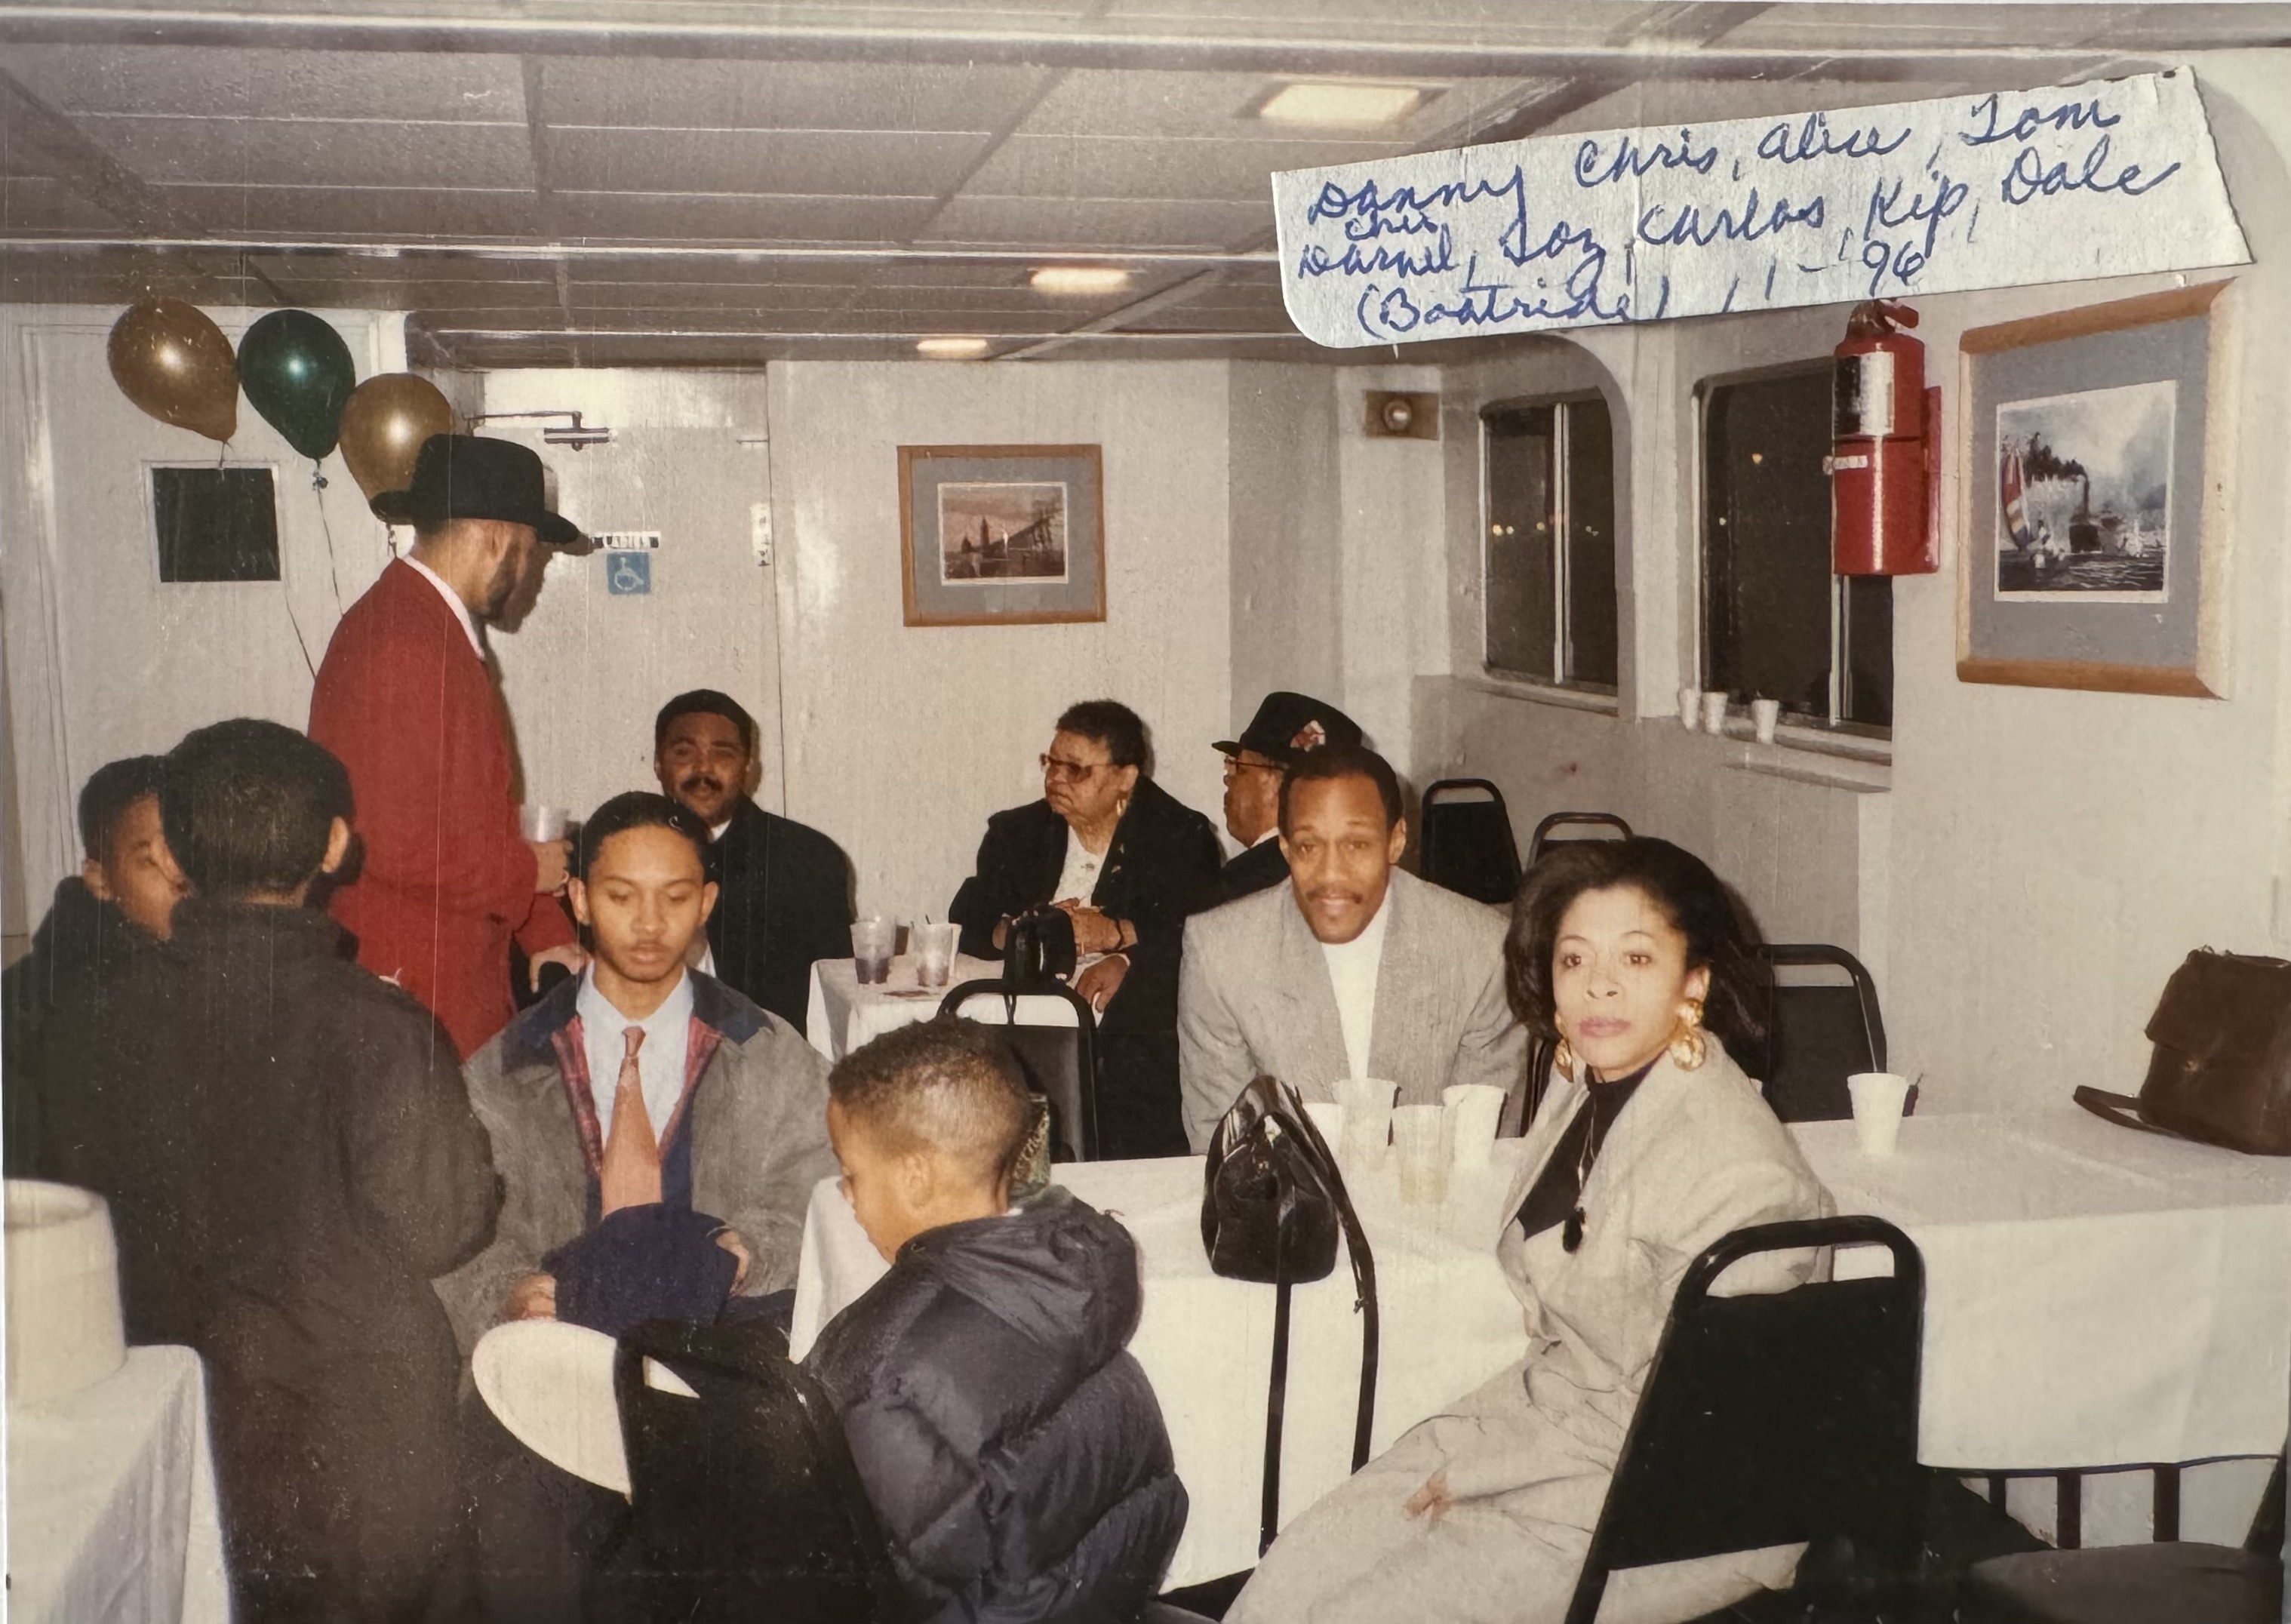 Danny Chris, Alice, Tom
Chris
Darnell, Joz, Carlos, Kip, Dale
(Boatride) 11-96
LADIES